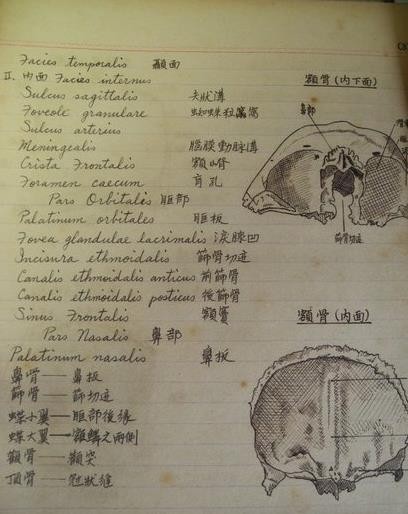 Facies temporalis 顳面
II. 内面 Facies internus
額骨(内下面)
Sulcus sagittalis 矢狀溝
鼻部
Foveole granulare 蜘蛛粒窩
Sulcus arterius
Meningealis 腦膜動脈溝
Crista Frontalis 額嵴
Foramen caecum 盲孔
Pars Orbitalis 眶部
Palatinum orbitales 眶板
篩骨切迹
Fovea glandulae lacrimalis 淚腺凹
Incisura ethmoidalis 篩骨切迹
Canalis ethmoidalis anticus 前篩骨
Canalis ethmoidalis posticus 後篩骨
Sinus Frontalis 額竇
額骨(内面)
Pars Nasalis 鼻部
Palatinum nasalis 鼻板
鼻骨——鼻板
篩骨——篩切迹
蝶小翼——眶部後緣
蝶大翼——鱗之兩側
顴骨——顴突
頂骨——冠狀縫